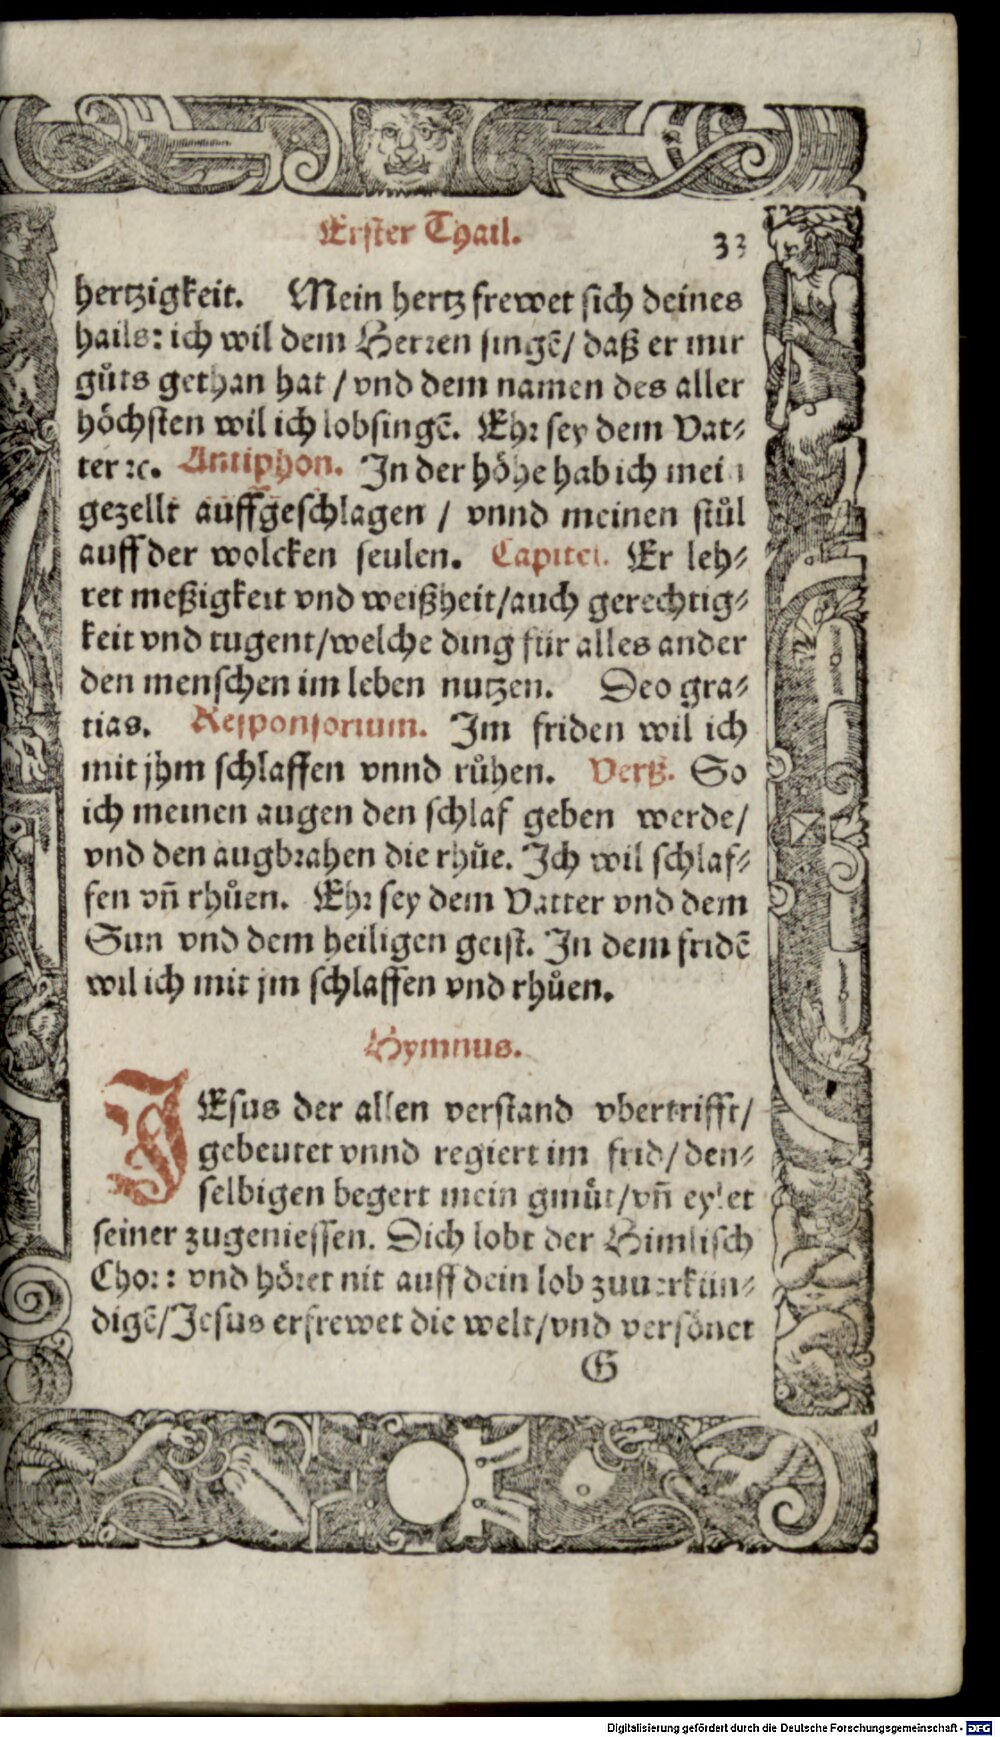 Erster Thail.
33
hertzigkeit. Mein hertz frewet sich deines
hails: ich wil dem Herren singẽ/ daß er mir
gůts gethan hat / vnd dem namen des aller
höchsten wil ich lobsingẽ. Ehr sey dem Vat⸗
ter ꝛc. Antiphon. In der höhe hab ich mein
gezellt auffgeschlagen / vnnd meinen stůl
auff der wolcken seulen. Capitel. Er leh⸗
ret meßigkeit vnd weißheit/auch gerechtig⸗
keit vnd tugent/welche ding für alles ander
den menschen im leben nutzen. Deo gra⸗
tias. Responsorium. Im friden wil ich
mit jhm schlaffen vnnd růhen. Verß. So
ich meinen augen den schlaf geben werde/
vnd den augbrahen die rhůe. Ich wil schlaf⸗
fen vñ rhůen. Ehr sey dem Vatter vnd dem
Sun vnd dem heiligen geist. In dem fridẽ
wil ich mit jm schlaffen vnd rhůen.
Hymnus.
JEsus der allen verstand vbertrifft/
gebeutet vnnd regiert im frid/den⸗
selbigen begert mein gmůt/vñ eylet
seiner zugeniessen. Dich lobt der Himlisch
Chor: vnd höret nit auff dein lob zuuerkün⸗
digẽ/Jesus erfrewet die welt/vnd versönet
G
Digitalisierung gefördert durch die Deutsche Forschungsgemeinschaft - DFG